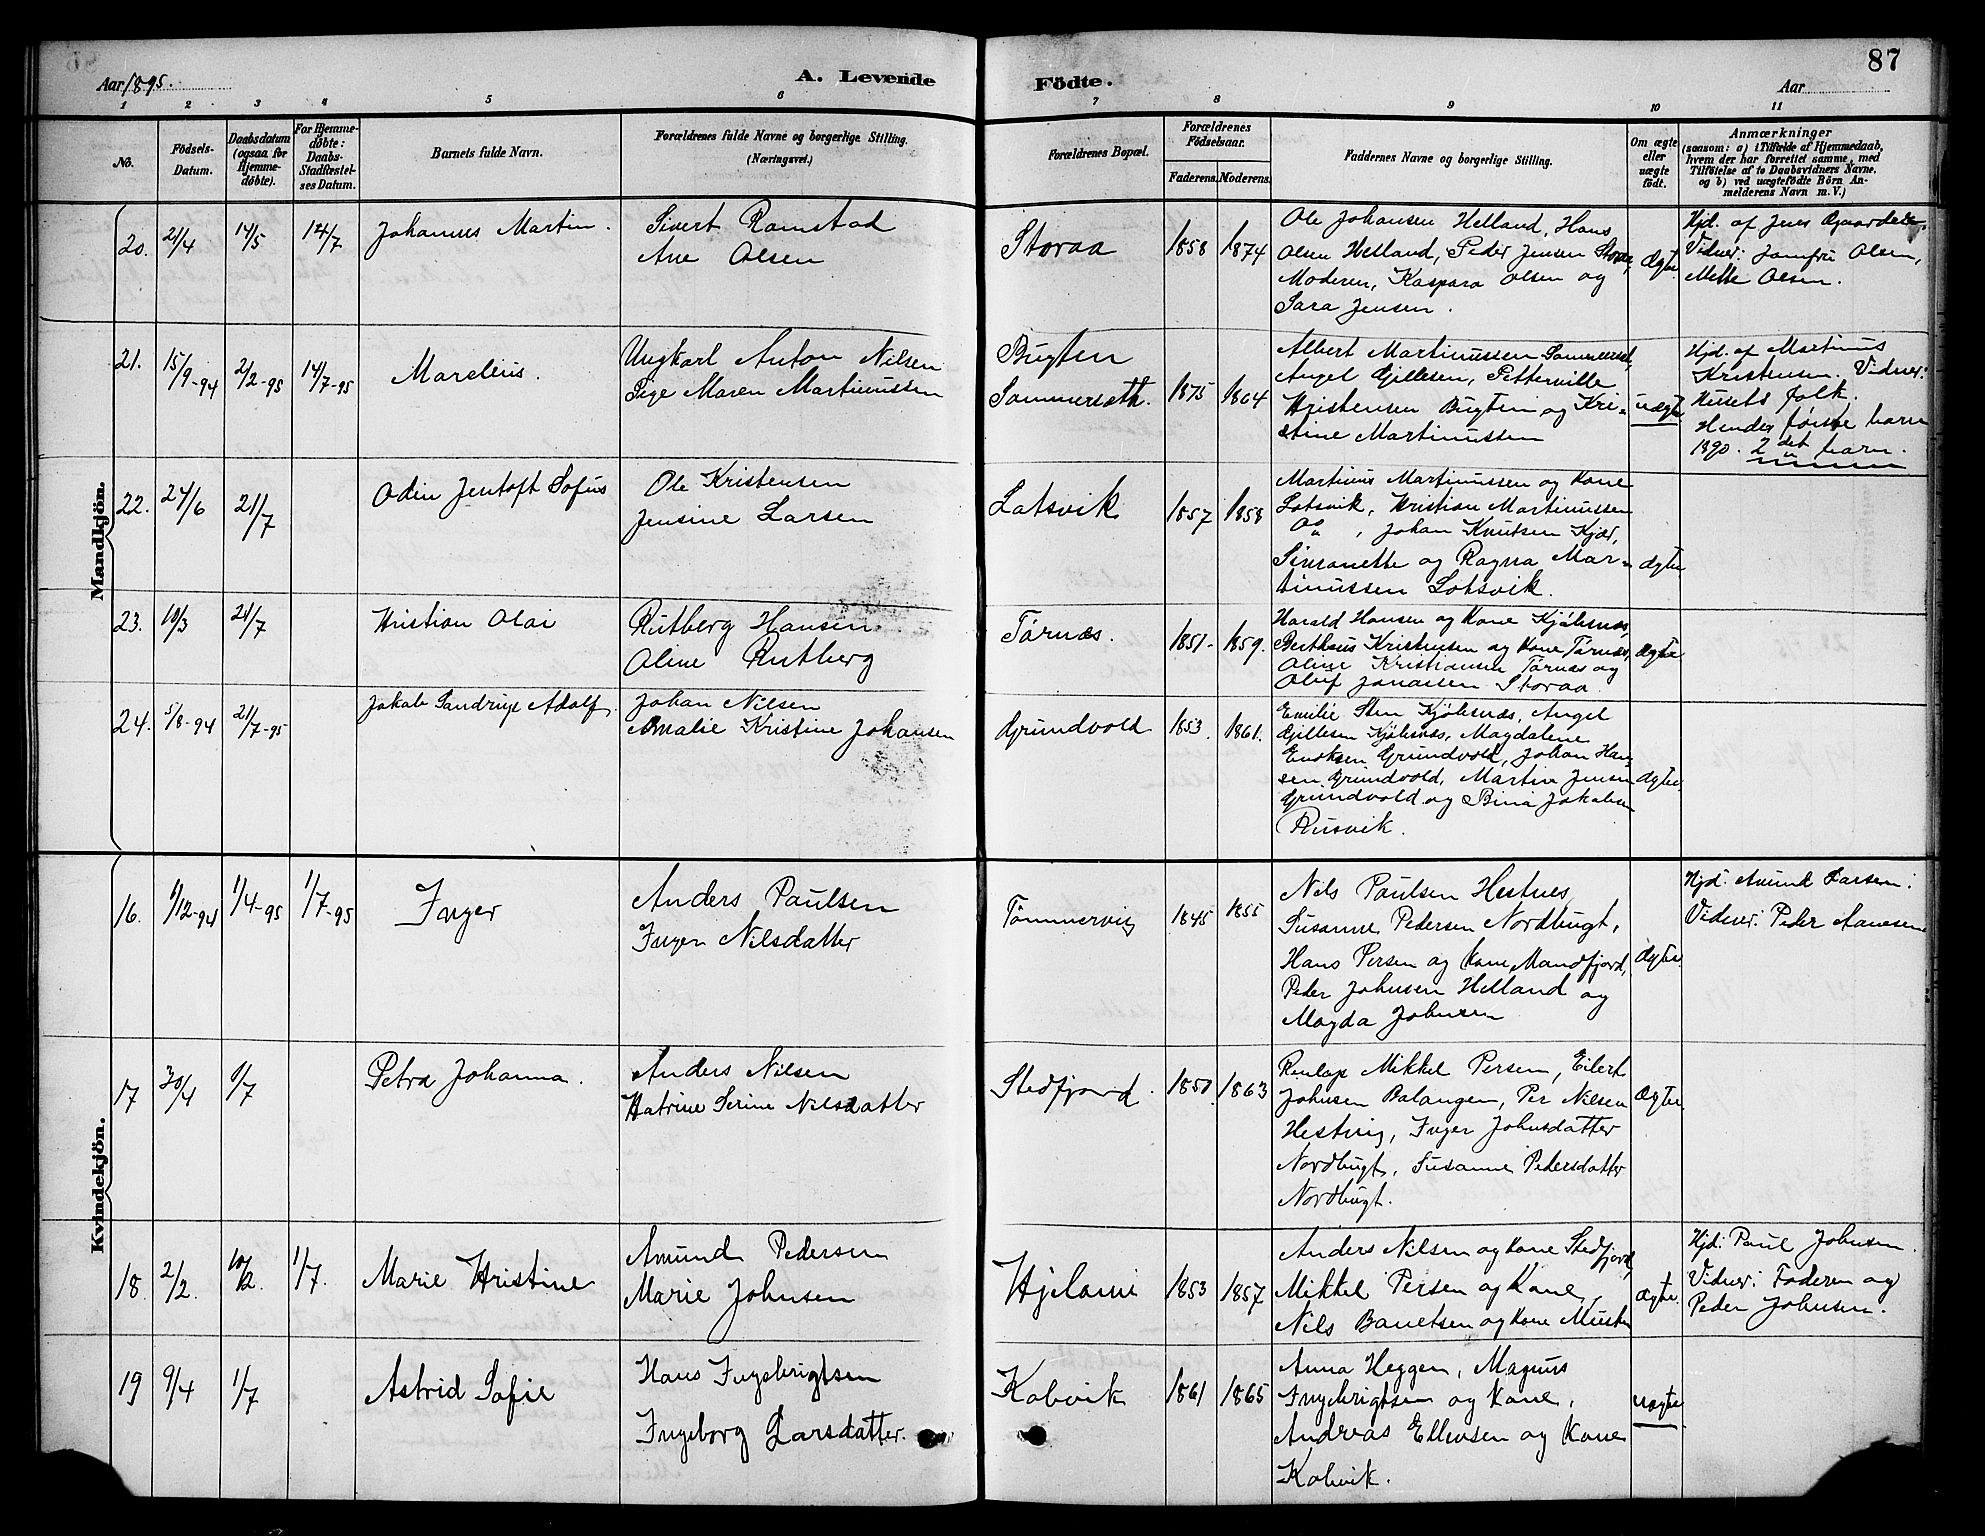 Aar 1895.
A. Levende
Födte.
Aar
87
1 2 3 4 5 6 7 8 9 10 11
No.
Födsels-Datum.
Daabsdatum (ogsaa for Hjemme-døbte).
For Hjemme-døbte: Daabs-Stadfæstel-ses Datum.
Barnets fulde Navn.
Forældrenes fulde Navne og borgerlige Stilling. (Næringsvei.)
Forældrenes Bopæl.
Forældrenes Födselsaar.
Faderens. Moderens.
Faddernes Navne og borgerlige Stilling.
Om ægte eller uægte födt.
Anmærkninger
(saasom: a) i Tilfælde af Hjemmedaab, hvem der har forrettet samme, med Tilföielse af to Daabsvidners Navne, og b) ved uægtefödte Börn An-melderens Navn m. V.)
Mandkjön.
20. 21/4 14/5 14/7 Johannes Martin.
Sivert Ramstad
Ane Olsen
Storaa 1858 1874
Ole Johansen Helland, Hans
Olsen Helland, Peder Jensen Storaa,
Moderen, Kaspara Olsen og
Sara Jensen.
ægte
Hjd. af Jens
Vidner: Jomfru Olsen,
Mette Olsen.
21. 15/9-94 2/2-95 14/7-95 Mardeus.
Ungkarl Anton Nilsen
Pige Maren Martinussen
Bugten
Sommersæth. 1875 1864
Albert Martinussen Sommersæt,
Angel Gillesen, Petterville
Kristensen Bugten og Kri-
stine Martinussen
uægte
Hjd. af Martinus
Kristensen. Vidner:
Husets folk.
Hendes første barn
1890. 2det barn.
22. 24/6 21/7 Odin Jentoft Sofus
Ole Kristensen
Jensine Larsen
Lotsvik 1857 1858
Martinus Martinussen og Kone
Lotsvik, Kristian Martinussen
, Johan Knutsen Kjær,
Simonette og Ragna Mar-
tinussen Lotsvik.
ægte
23. 10/3 21/7 Kristian Olai
Rutberg Hansen
Oline Rutberg
Tårnæs. 1851- 1859.
Harald Hansen og Kone Kjøbsnæs,
Berthæus Kristensen og Kone Tårnæs,
Oline Kristiansen Tårnæs og
Oluf Jonassen Storaa
ægte
24. 5/8-94 21/7-95 Jakob Sandrup Adolf.
Johan Nilsen
Amalie Kristine Johansen
Grundvold 1853. 1861.
Emilie Sten Kjøbsnæs, Angel
Gillesen Kjøbsnæs, Magdalene
Enoksen Grundvold, Johan Han-
sen Grundvold, Martin Jensen
Grundvold og Bina Jakobsen
Rusvik.
ægte
Kvindekjön.
16. 1/12-94 1/4-95 1/7-95 Inger
Anders Paulsen
Inger Nilsdatter
Tømmervig 1845 1855
Nils Paulsen Hestnes,
Susanne Pedersen Nordbugt,
Hans Persen og Kone, Mandfjord,
Peder Johnsen Helland og
Magda Johnsen
ægte
Hjd: Amund Larsen:
Vidner: Peder Aanesen
17 30/4 1/7 Petra Johanna.
Anders Nilsen
Katrine Serine Nilsdatter
Stedfjord. 1850. 1863
Renlap Mikkel Persen, Eilert
Johnsen Balangen, Per Nilsen
Hestvig, Inger Johnsdatter
Nordbugt, Susanne Pedersdatter
Nordbugt.
Ægte.
18. 2/2. 10/2. 1/7. Marie Kristine
Amund Pedersen
Marie Johnsen
Hjelarni 1853 1857
Anders Nilsen og Kone Stedfjord,
Mikkel Persen og Kone,
Nils Banetsen og Kone
ægte.
Hjd: Paul Johnsen.
Vidner: Faderen og
Peder Johnsen.
19 9/4 1/7 Astrid Sofie
Hans Ingebrigtsen
Ingeborg Larsdatter.
Kobvik 1861 1865
Anna Heggen, Magnus
Ingebrigtsen og Kone,
Andreas Ellevsen og Kone
Kobvik.
uægte